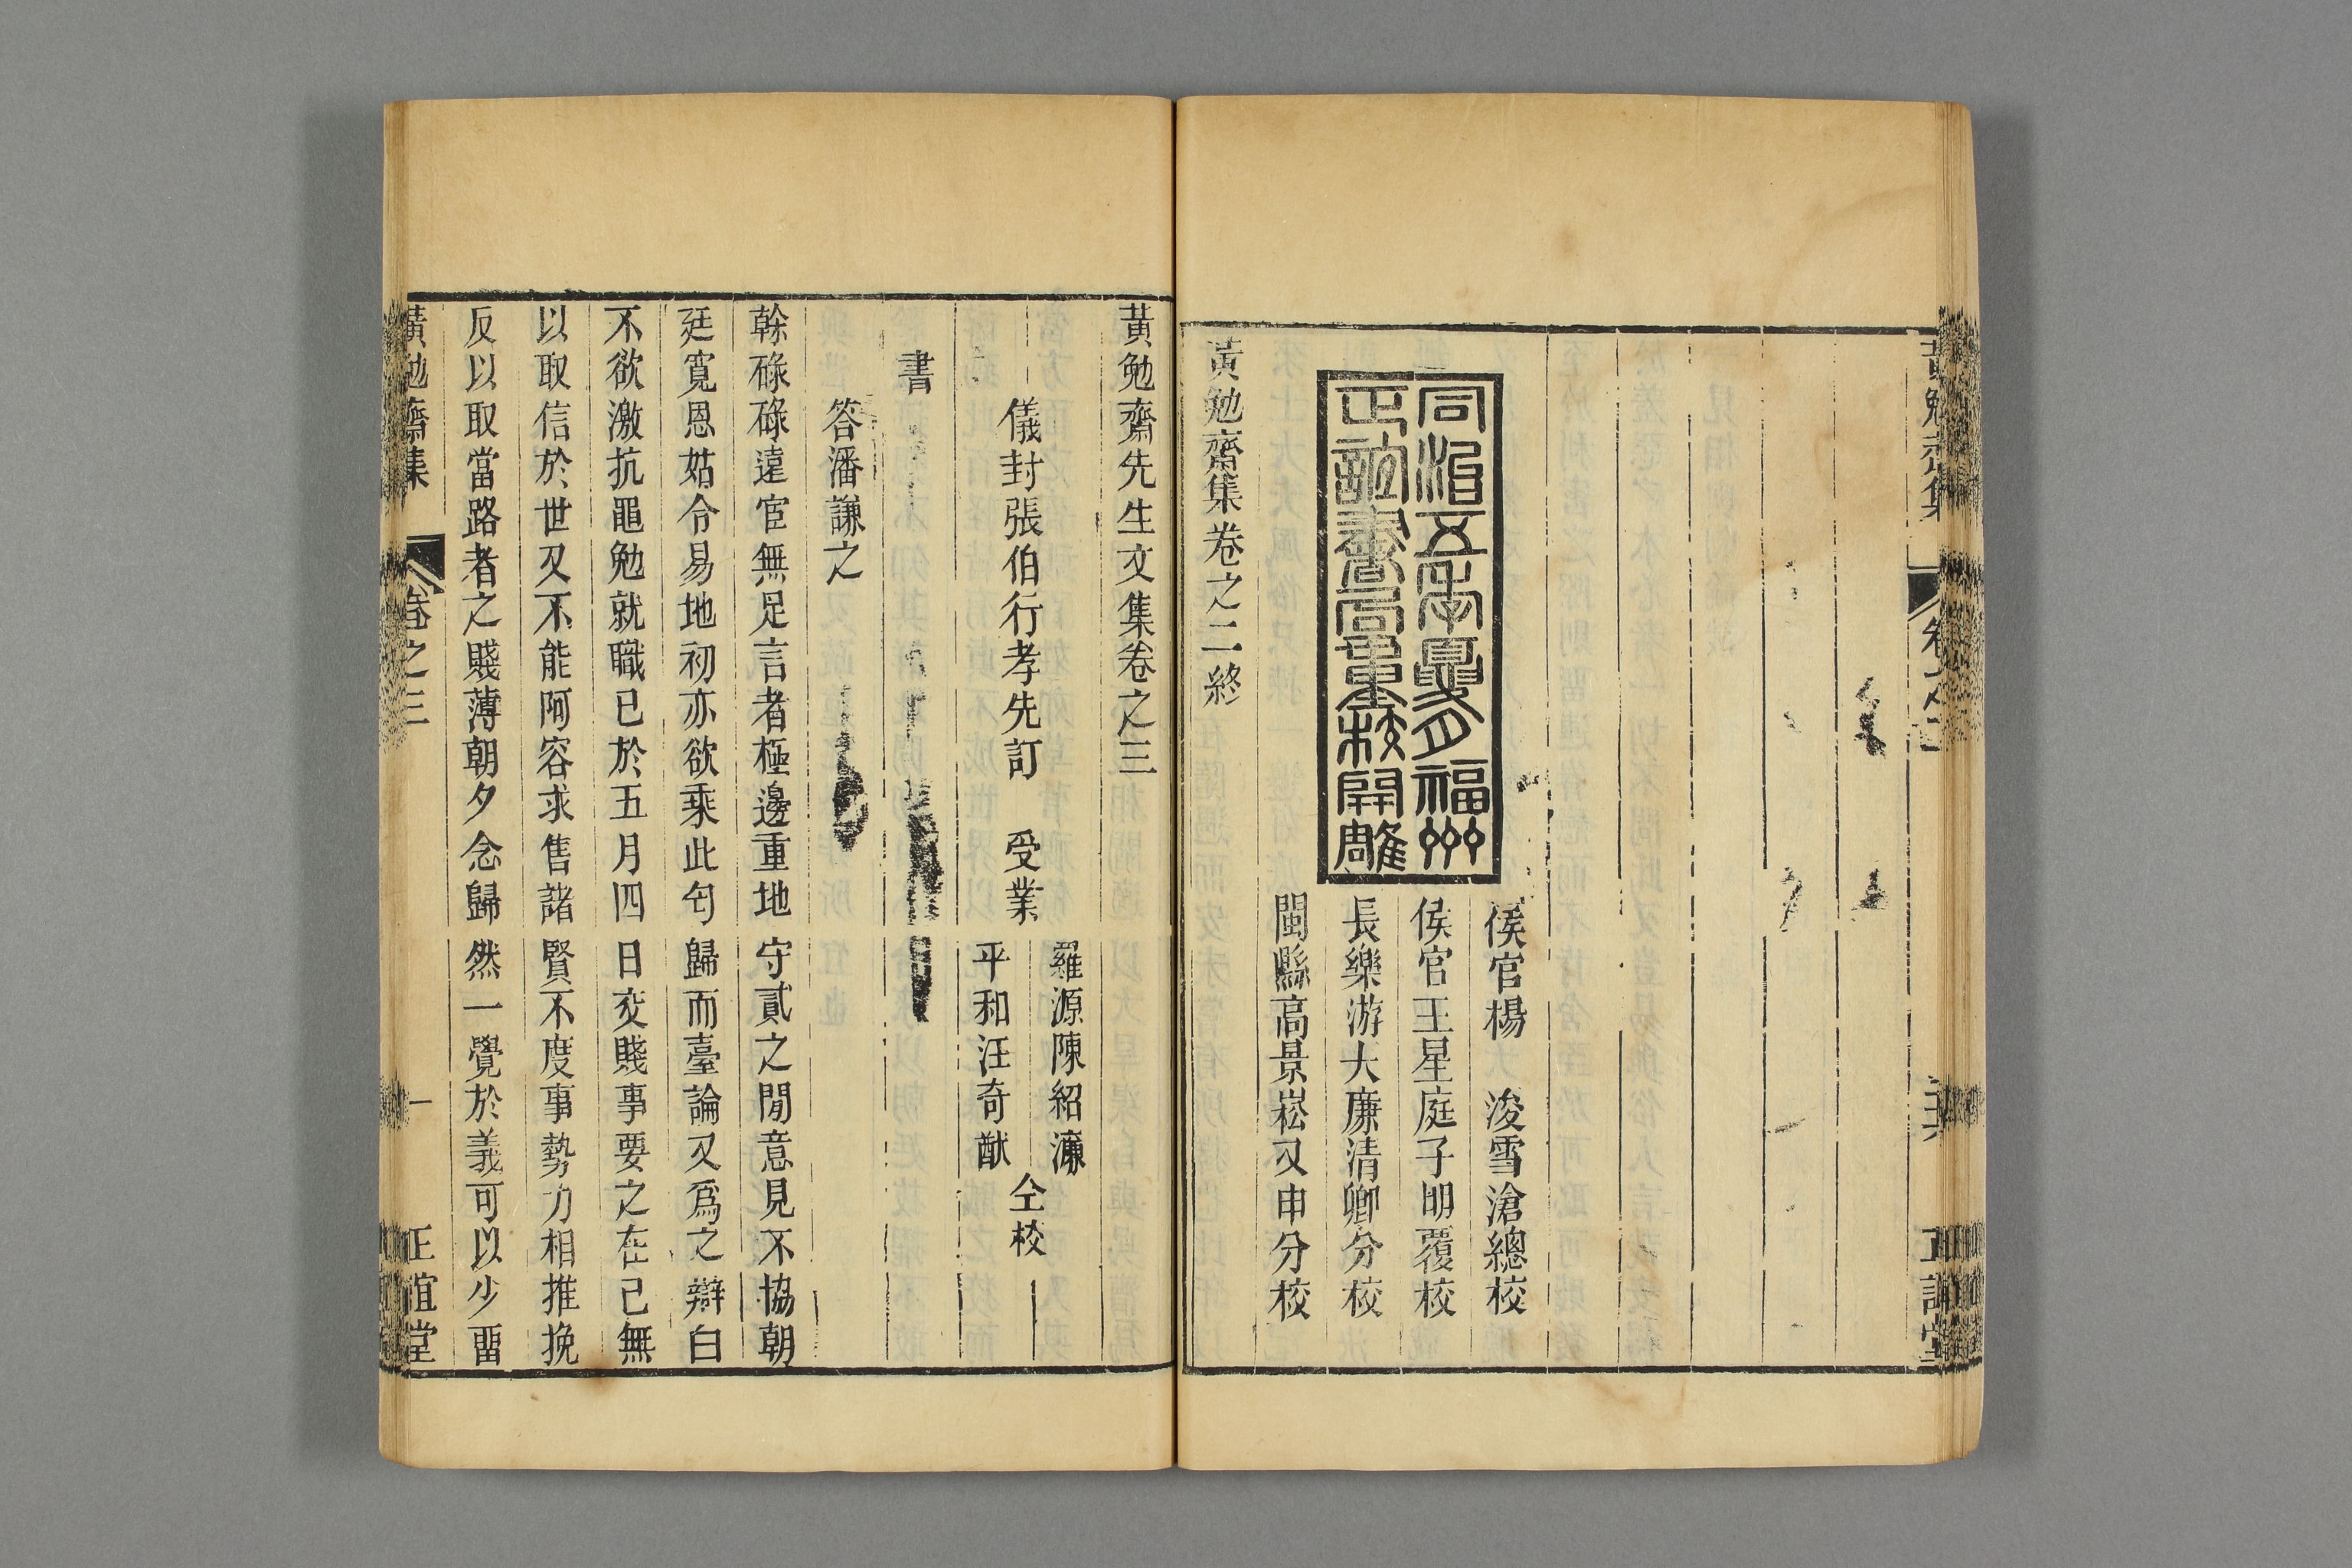 黃勉齋集
卷之二
正誼堂
同治五年夏月福州
正誼書局重校開雕
侯官楊　浚雪滄總校
侯官王星庭子明覆校
長樂游大廉清卿分校
閩縣高景崧又申分校
黃勉齋集卷之二終
黃勉齋先生文集卷之三
儀封張伯行孝先訂　受業
羅源陳紹濂
平和汪奇猷
仝校
書
答潘謙之
榦碌碌遠宦無足言者極邊重地守貳之閒意見不協朝
廷寬恩姑令易地初亦欲乘此匄歸而臺論又爲之辯白
不欲激抗黽勉就職已於五月四日交賤事要之在己無
以取信於世又不能阿容求售諸賢不度事勢力相推挽
反以取當路者之賤薄朝夕念歸然一覺於義可以少畱
黃勉齋集
卷之三
一
正誼堂